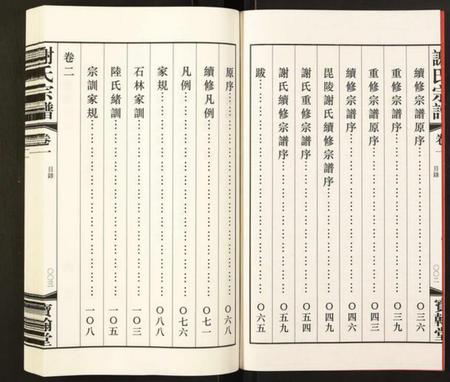 謝氏宗譜
卷一
目錄
寶翰堂
續修宗譜原序……〇三六
重修宗譜序……〇三九
重修宗譜原序……〇四三
續修宗譜序……〇四六
毘陵謝氏續修宗譜序……〇四九
謝氏重修宗譜序……〇五四
謝氏續修宗譜序……〇五九
跋……〇六五
原序……〇六八
續修凡例……〇七一
凡例……〇七六
家規……〇八八
石林家訓……一〇三
陸氏緒訓……一〇五
宗訓家規……一〇八
卷二
謝氏宗譜
卷一
目錄
〇〇三
寶翰堂